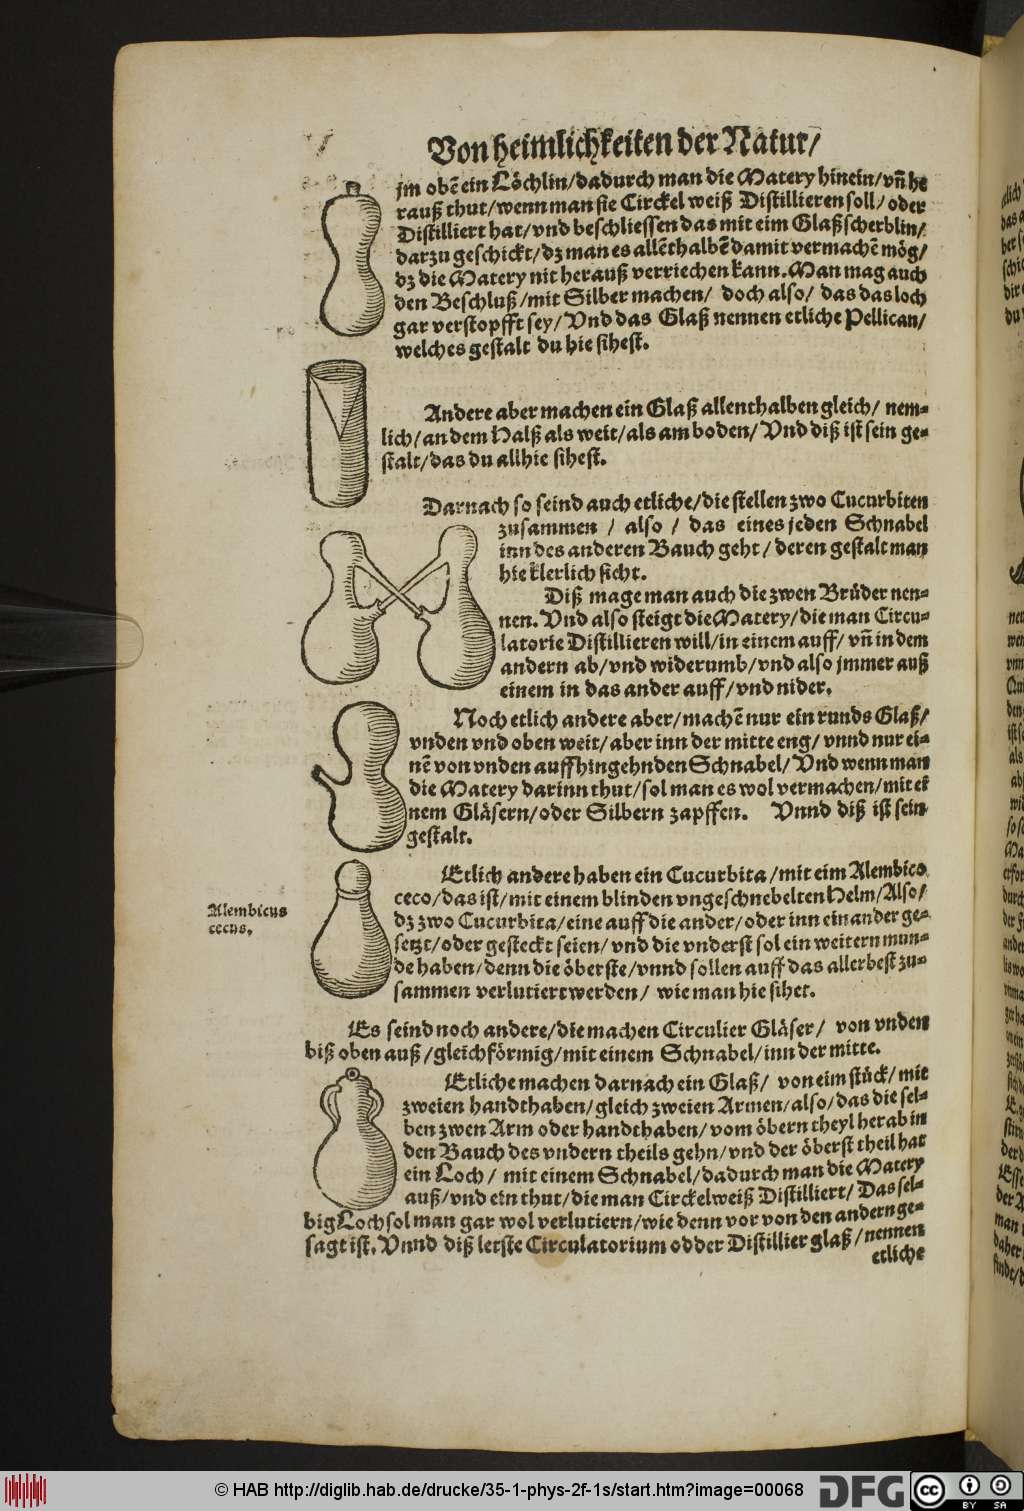 Von heimlichkeiten der Natur/
jm obẽ ein Löchlin/dadurch man die Matery hinein/vñ he
rauß thut/wenn man sie Circkel weiß Distillieren soll/oder
Distilliert hat/vnd beschliessen das mit eim Glaßscherblin/
darzu geschickt/dz man es allẽthalbẽ damit vermachẽ mög/
dz die Matery nit herauß verriechen kann. Man mag auch
den Beschluß/mit Silber machen/ doch also/ das das loch
gar verstopfft sey/Vnd das Glaß nennen etliche Pellican/
welches gestalt du hie sihest.
Andere aber machen ein Glaß allenthalben gleich/ nem-
lich/an dem Halß als weit/als am boden/Vnd diß ist sein ge-
stalt/das du allhie sihest.
Darnach so seind auch etliche/die stellen zwo Cucurbiten
zusammen / also / das eines jeden Schnabel
inn des anderen Bauch geht/deren gestalt man
hie klerlich sicht.
Diß mage man auch die zwen Brüder nen-
nen. Vnd also steigt die Matery/die man Circu-
latorie Distillieren will/in einem auff/ vñ in dem
andern ab/vnd widerumb/vnd also jmmer auß
einem in das ander auff/vnd nider.
Noch etlich andere aber/machẽ nur ein runds Glaß/
vnden vnd oben weit/aber inn der mitte eng/ vnnd nur ei-
nẽ von vnden auffhingehnden Schnabel/ Vnd wenn man
die Matery darinn thut/sol man es wol vermachen/mit ei
nem Gläsern/oder Silbern zapffen. Vnnd diß ist sein
gestalt.
Etlich andere haben ein Cucurbita/mit eim Alembico
ceco/das ist/mit einem blinden vngeschnebelten Helm/Also/
dz zwo Cucurbita/eine auff die ander/oder inn einander ge-
setzt/oder gesteckt seien/vnd die vnderst sol ein weitern mun-
de haben/denn die öberste/vnnd sollen auff das allerbest zu-
sammen verlutiert werden/ wie man hie sihet.
Alembicus
cecus.
Es seind noch andere/die machen Circulier Gläser/ von vnden
biß oben auß/gleichförmig/mit einem Schnabel/inn der mitte.
Etliche machen darnach ein Glaß/ von eim stück/mit
zweien handthaben/gleich zweien Armen/also/das die sel-
ben zwen Arm oder handthaben/vom öbern theyl herab in
den Bauch des vndern theils gehn/vnd der öberst theil hat
ein Loch/ mit einem Schnabel/dadurch man die Matery
auß/vnd ein thut/die man Circkelweiß Distilliert/ Das sel-
big Loch sol man gar wol verlutiern/wie denn vor von den andern ge-
sagt ist. Vnnd diß letste Circulatorium odder Distillier glaß/nennen
etliche
© HAB http://diglib.hab.de/drucke/35-1-phys-2f-1s/start.htm?image=00068
DFG
cc
BY SA